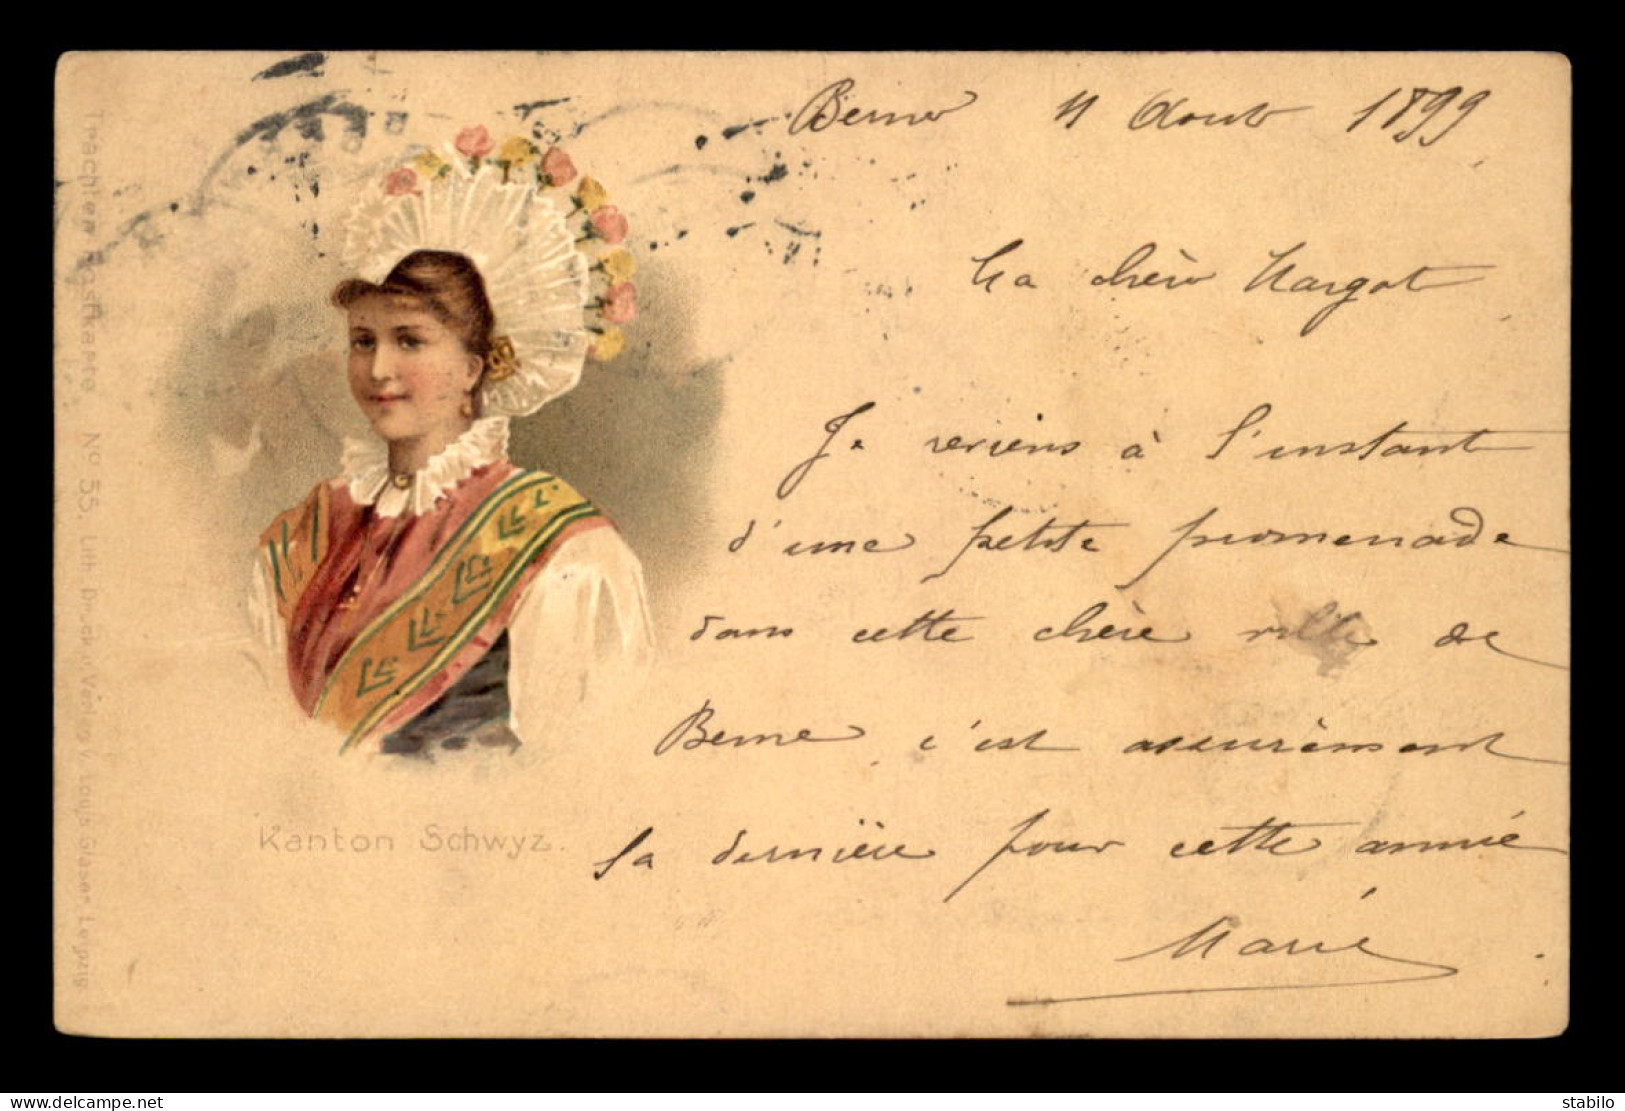 Berne 11 Aout 1899
Ma chère Margot
Je reviens à l'instant
d'une petite promenade
dans cette chère ville de
Berne c'est assurément
la dernière pour cette année
Marie
Kanton Schwyz.
Trachten Postkarte No 55. Lith. Druck u. Verlag v. Louis Glaser Leipzig.
www.delcampe.net
stabilo